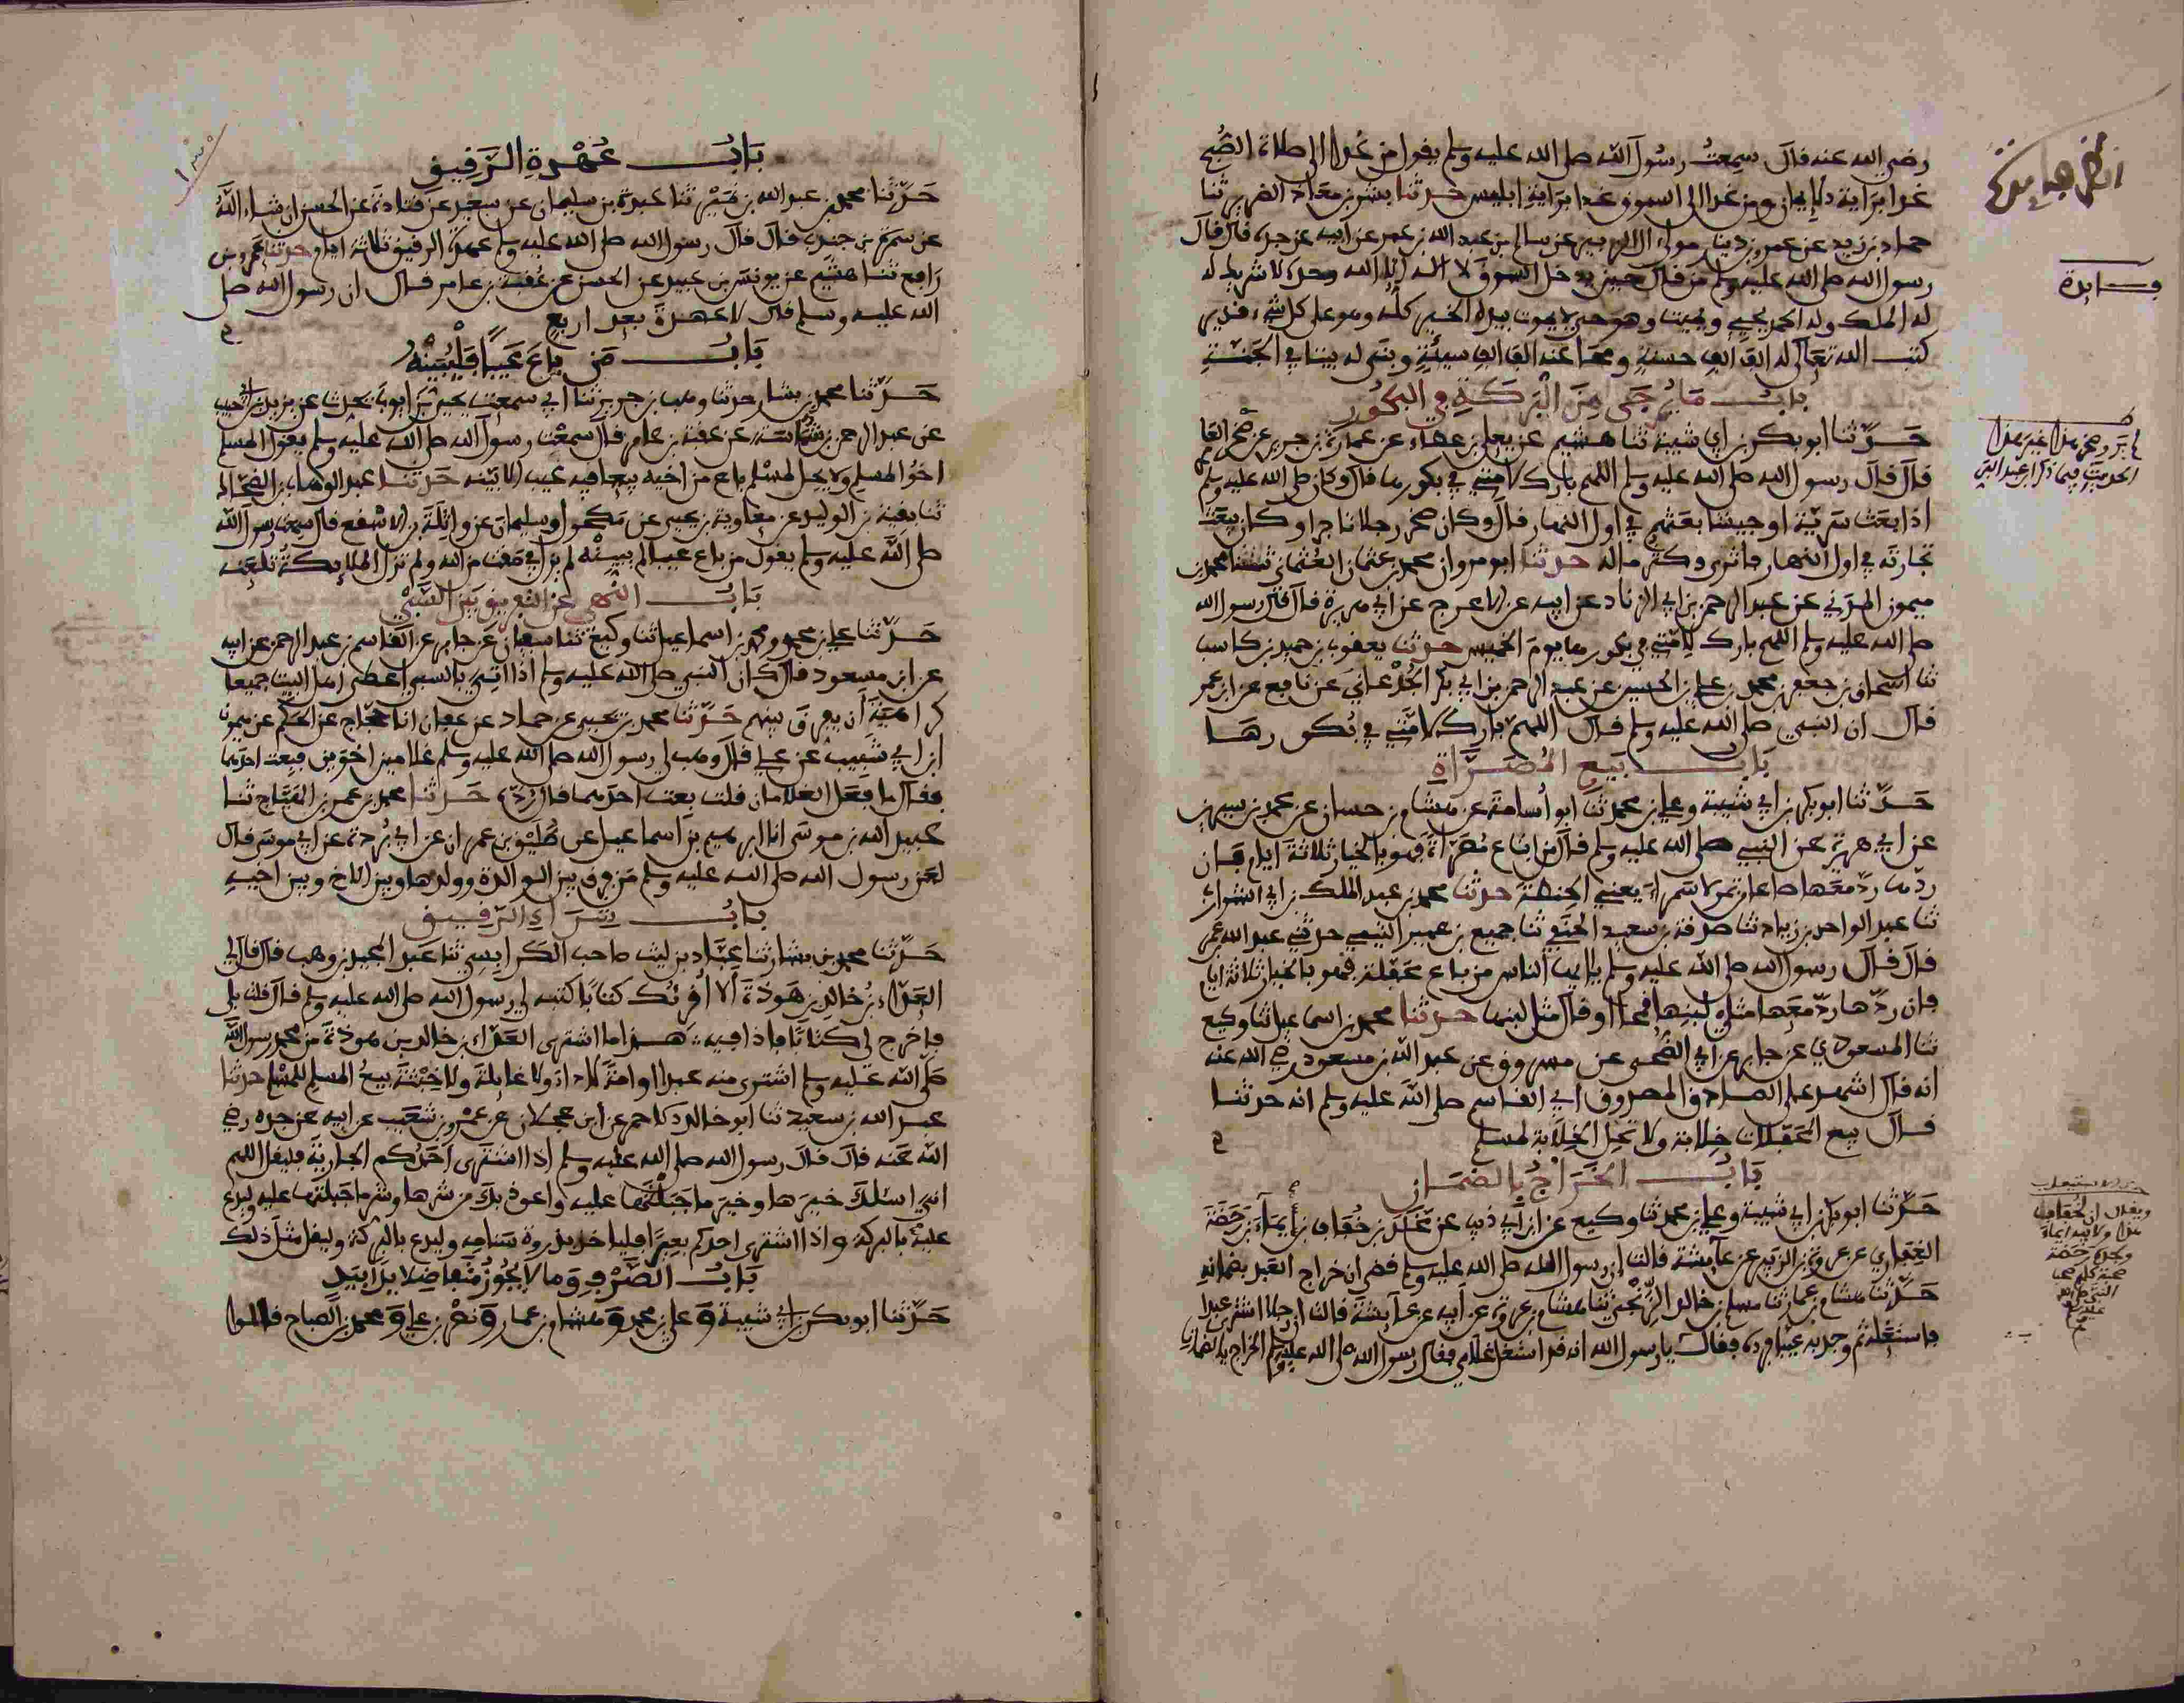 رضي الله عنه قال سمعت رسول الله صلى الله عليه وسلم يقول من غدا الى صلاة الصبح
غدا براية الايمان ومن غدا الى السوق غدا براية ابليس حدثنا بشر بن معاذ الضرير ثنا
حماد بن زيد عن عمرو بن دينار مولى ال الزبير عن سالم بن عبد الله بن عمر عن ابيه عن جده قال قال
رسول الله صلى الله عليه وسلم من قال حين يدخل السوق لا اله الا الله وحده لا شريك له
له الملك وله الحمد يحيي ويميت وهو حي لا يموت بيده الخير كله وهو على كل شيء قدير
كتب الله تعالى له الف الف حسنة ومحا عنه الف الف سيئة وبنى له بيتا في الجنة
باب ما يرجى من البركة في البكور
حدثنا ابو بكر بن ابي شيبة ثنا هشيم عن يعلى بن عطاء عن عمارة بن حديد عن صخر الغامدي
قال قال رسول الله صلى الله عليه وسلم اللهم بارك لامتي في بكورها قال وكان صلى الله عليه وسلم
اذا بعث سرية او جيشا بعثهم في اول النهار قال وكان صخر رجلا تاجرا وكان يبعث
تجارته في اول النهار فاثرى وكثر ماله حدثنا ابو مروان محمد بن عثمان العثماني ثنا محمد بن
ميمون المدني عن عبد الرحمن بن ابي الزناد عن ابيه عن الاعرج عن ابي هريرة قال قال رسول الله
صلى الله عليه وسلم اللهم بارك لامتي في بكورها يوم الخميس حدثنا يعقوب بن حميد بن كاسب
ثنا اسحاق بن جعفر بن محمد بن علي بن الحسين عن عبد الرحمن بن ابي بكر الجدعاني عن نافع عن ابن عمر
قال ان النبي صلى الله عليه وسلم قال اللهم بارك لامتي في بكورها
باب بيع المصراة
حدثنا ابو بكر بن ابي شيبة وعلي بن محمد ثنا ابو أسامة عن هشام بن حسان عن محمد بن سيرين
عن ابي هريرة عن النبي صلى الله عليه وسلم قال من ابتاع مصراة فهو بالخيار ثلاثة ايام فان
ردها رد معها صاعا من تمر لا سمراء يعني الحنطة حدثنا محمد بن عبد الملك بن ابي الشوارب
ثنا عبد الواحد بن زياد ثنا صدقة بن سعيد الحنفي ثنا جميع بن عمير التيمي حدثني عبد الله بن عمر
قال قال رسول الله صلى الله عليه وسلم يا ايها الناس من باع محفلة فهو بالخيار ثلاثة ايام
فان ردها رد معها مثلي لبنها قمحا او قال مثل لبنها حدثنا محمد بن اسماعيل ثنا وكيع
ثنا المسعودي عن جابر عن ابي الضحى عن مسروق عن عبد الله بن مسعود رضي الله عنه
انه قال اشهد على الصادق المصدوق ابي القاسم صلى الله عليه وسلم انه حدثنا
قال بيع المحفلات خلابة ولا تحل الخلابة لمسلم
باب الخراج بالضمان
حدثنا ابو بكر بن ابي شيبة وعلي بن محمد ثنا وكيع عن ابن ابي ذيب عن مخلد بن خفاف بن أيماء بن رحضة
الغفاري عن عروة بن الزبير عن عايشة قالت ان رسول الله صلى الله عليه وسلم قضى ان خراج العبد بضمانه
حدثنا هشام بن عمار ثنا مسلم بن خالد الزنجي ثنا هشام بن عروة عن ابيه عن عايشة قالت ان رجلا اشترى عبدا
فاستغله ثم وجد به عيبا فرده فقال يا رسول الله انه قد استغل غلامي فقال رسول الله صلى الله عليه وسلم الخراج بالضمان
باب عهدة الرقيق
حدثنا محمد بن عبد الله بن نمير ثنا عبدة بن سليمان عن سعيد عن قتادة عن الحسن ان شاء الله
عن سمرة بن جندب قال قال رسول الله صلى الله عليه وسلم عهدة الرقيق ثلاثة ايام حدثنا عمرو بن
رافع ثنا هشيم عن يونس بن عبيد عن الحسن عن عقبة بن عامر قال ان رسول الله صلى
الله عليه وسلم قال لا عهدة بعد اربع
باب من باع عيبا فليبينه
حدثنا محمد بن بشار حدثنا وهب بن جرير ثنا ابي سمعت يحيى بن ايوب يحدث عن يزيد بن ابي حبيب
عن عبد الرحمن بن شماسة عن عقبة بن عامر قال سمعت رسول الله صلى الله عليه وسلم يقول المسلم
اخو المسلم ولا يحل لمسلم باع من اخيه بيعا فيه عيب الا بينه حدثنا عبد الوهاب بن الضحاك
ثنا بقية بن الوليد عن معاوية بن يحيى عن مكحول وسليمان عن واثلة بن الاسقع قال سمعت رسول الله
صلى الله عليه وسلم يقول من باع عيبا لم يبينه لم يزل في مقت من الله ولم تزل الملايكة تلعنه
باب النهي عن التفريق بين السبي
حدثنا علي بن محمد ومحمد بن اسماعيل ثنا وكيع ثنا سفيان عن جابر عن القاسم بن عبد الرحمن عن ابيه
عن ابن مسعود قال كان النبي صلى الله عليه وسلم اذا اتي بالسبي اعطى اهل البيت جميعا
كراهية أن يفرق بينهم حدثنا محمد بن يحيى عن حماد عن عفان انا حجاج عن الحكم عن ميمون
ابن ابي شبيب عن علي قال وهب لي رسول الله صلى الله عليه وسلم غلامين اخوين فبعت احدهما
فقال ما فعل الغلامان قلت بعت احدهما قال رده حدثنا محمد بن عمر بن الهياج ثنا
عبيد الله بن موسى انا ابراهيم بن اسماعيل عن طليق بن عمران عن ابي بردة عن ابي موسى قال
لعن رسول الله صلى الله عليه وسلم من فرق بين الوالدة وولدها وبين الاخ وبين اخيه
باب شراء الرقيق
حدثنا محمد بن بشار ثنا عباد بن ليث صاحب الكرابيسي ثنا عبد المجيد بن وهب قال قال لي
العداء بن خالد بن هوذة ألا أقرئك كتابا كتبه لي رسول الله صلى الله عليه وسلم قال قلت بلى
فاخرج لي كتابا فاذا فيه هذا ما اشترى العداء بن خالد بن هوذة من محمد رسول الله
صلى الله عليه وسلم اشترى منه عبدا او امة لا داء ولا غايلة ولا خبثة بيع المسلم للمسلم حدثنا
عبد الله بن سعيد ثنا ابو خالد الاحمر عن ابن عجلان عن عمرو بن شعيب عن ابيه عن جده رضي
الله عنه قال قال رسول الله صلى الله عليه وسلم اذا اشترى احدكم الجارية فليقل اللهم
اني اسئلك خيرها وخير ما جبلتها عليه واعوذ بك من شرها وشر ما جبلتها عليه وليدع
عليه بالبركة واذا اشترى احدكم بعيرا فلياخذ بذروة سنامه وليدع بالبركة وليقل مثل ذلك
باب الصرف وما لا يجوز متفاضلا يدا بيد
حدثنا ابو بكر بن ابي شيبة وعلي بن محمد وهشام بن عمار ونصر بن علي ومحمد بن الصباح قالوا